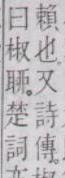 賴也又詩傳
曰椒聊楚詞